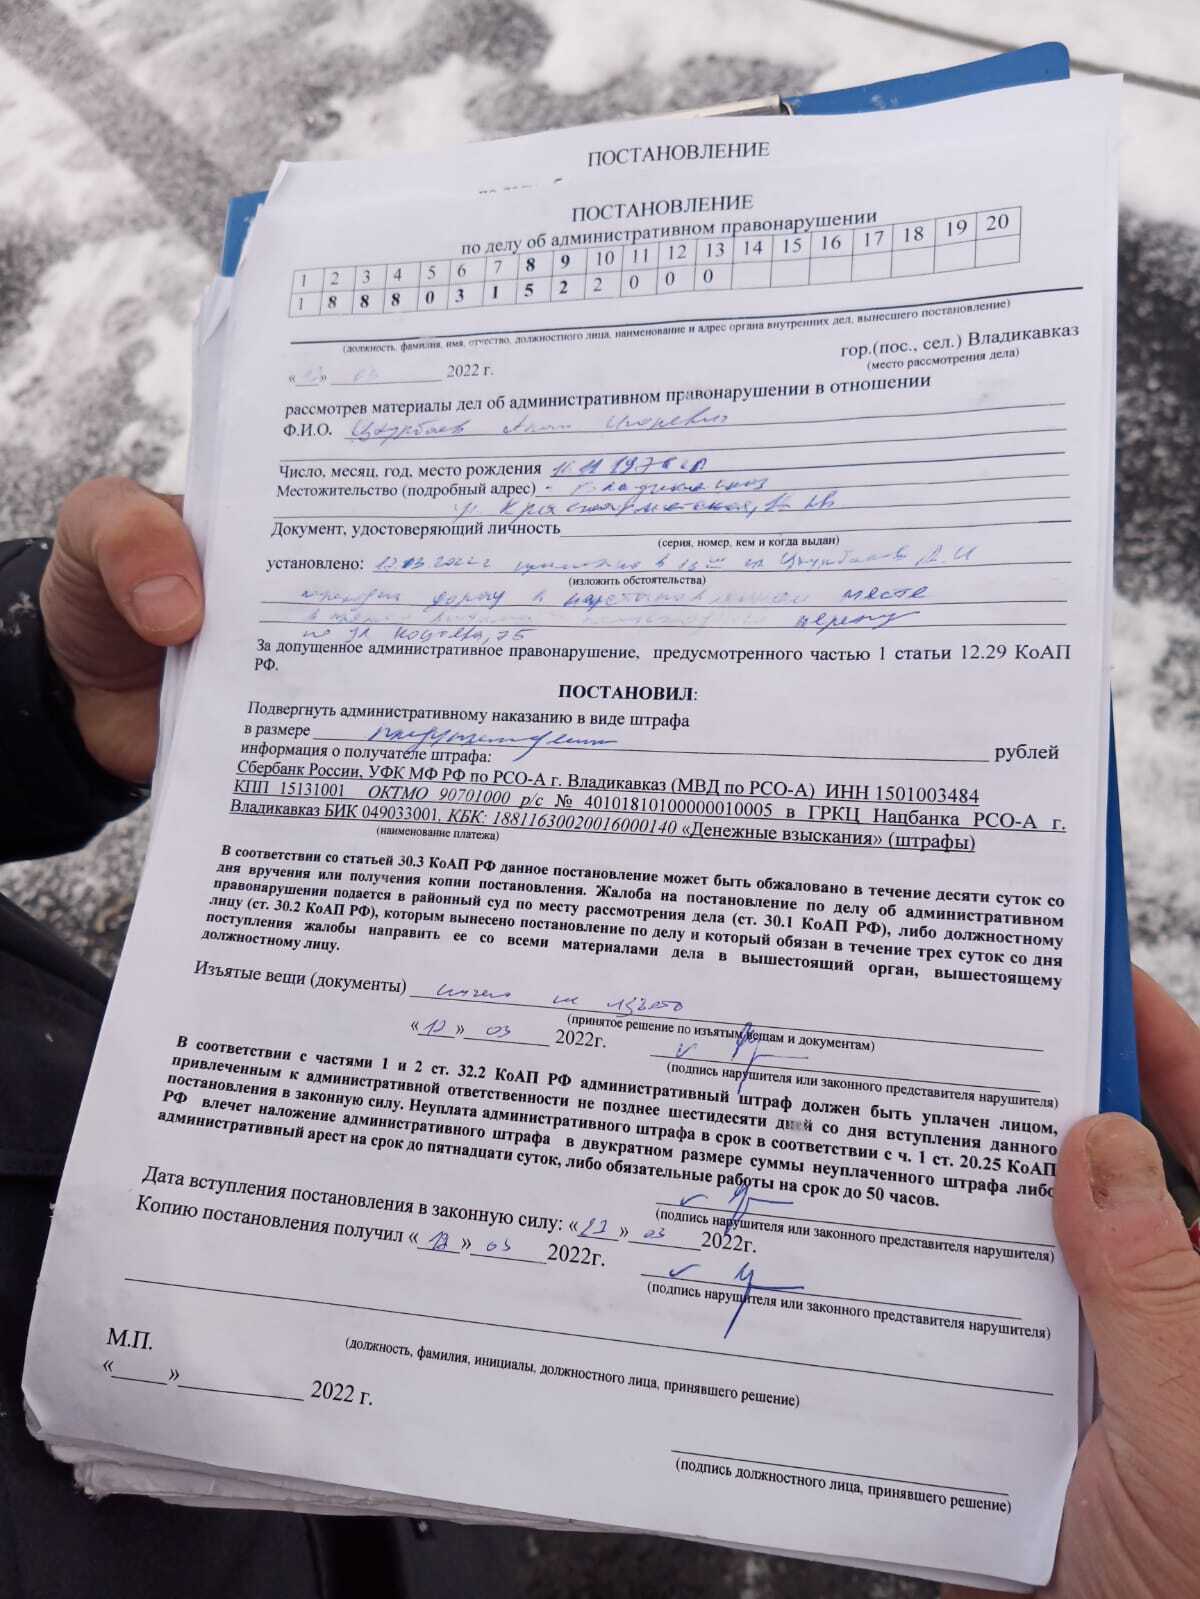 ПОСТАНОВЛЕНИЕ
ПОСТАНОВЛЕНИЕ
по делу об административном правонарушении
1 2 3 4 5 6 7 8 9 10 11 12 13 14 15 16 17 18 19 20
1 8 8 8 0 3 1 5 2 2 0 0 0
(должность, фамилия, имя, отчество, должностного лица, наименование и адрес органа внутренних дел, вынесшего постановление)
гор.(пос., сел.) Владикавказ
(место рассмотрения дела)
«12» 03 2022 г.
рассмотрев материалы дел об административном правонарушении в отношении
Ф.И.О.
Число, месяц, год, место рождения
Местожительство (подробный адрес)
ул.
Документ, удостоверяющий личность
(серия, номер, кем и когда выдан)
установлено: 12.03.2022г
(изложить обстоятельства)
дорогу в месте
по ул
За допущенное административное правонарушение, предусмотренного частью 1 статьи 12.29 КоАП
РФ.
ПОСТАНОВИЛ:
Подвергнуть административному наказанию в виде штрафа
в размере предупреждение рублей
информация о получателе штрафа:
Сбербанк России, УФК МФ РФ по РСО-А г. Владикавказ (МВД по РСО-А) ИНН 1501003484
КПП 15131001 ОКТМО 90701000 р/с № 40101810100000010005 в ГРКЦ Нацбанка РСО-А г.
Владикавказ БИК 049033001, КБК: 18811630020016000140 «Денежные взыскания» (штрафы)
(наименование платежа)
В соответствии со статьей 30.3 КоАП РФ данное постановление может быть обжаловано в течение десяти суток со
дня вручения или получения копии постановления. Жалоба на постановление по делу об административном
правонарушении подается в районный суд по месту рассмотрения дела (ст. 30.1 КоАП РФ), либо должностному
лицу (ст. 30.2 КоАП РФ), которым вынесено постановление по делу и который обязан в течение трех суток со дня
поступления жалобы направить ее со всеми материалами дела в вышестоящий орган, вышестоящему
должностному лицу.
Изъятые вещи (документы) ничего не изъято
(принятое решение по изъятым вещам и документам)
«12» 03 2022г.
(подпись нарушителя или законного представителя нарушителя)
В соответствии с частями 1 и 2 ст. 32.2 КоАП РФ административный штраф должен быть уплачен лицом,
привлеченным к административной ответственности не позднее шестидесяти дней со дня вступления данного
постановления в законную силу. Неуплата административного штрафа в срок в соответствии с ч. 1 ст. 20.25 КоАП
РФ влечет наложение административного штрафа в двукратном размере суммы неуплаченного штрафа либо
административный арест на срок до пятнадцати суток, либо обязательные работы на срок до 50 часов.
(подпись нарушителя или законного представителя нарушителя)
Дата вступления постановления в законную силу: «23» 03 2022г.
Копию постановления получил «12» 03 2022г.
(подпись нарушителя или законного представителя нарушителя)
(должность, фамилия, инициалы, должностного лица, принявшего решение)
М.П.
«____»__________ 2022 г.
(подпись должностного лица, принявшего решение)